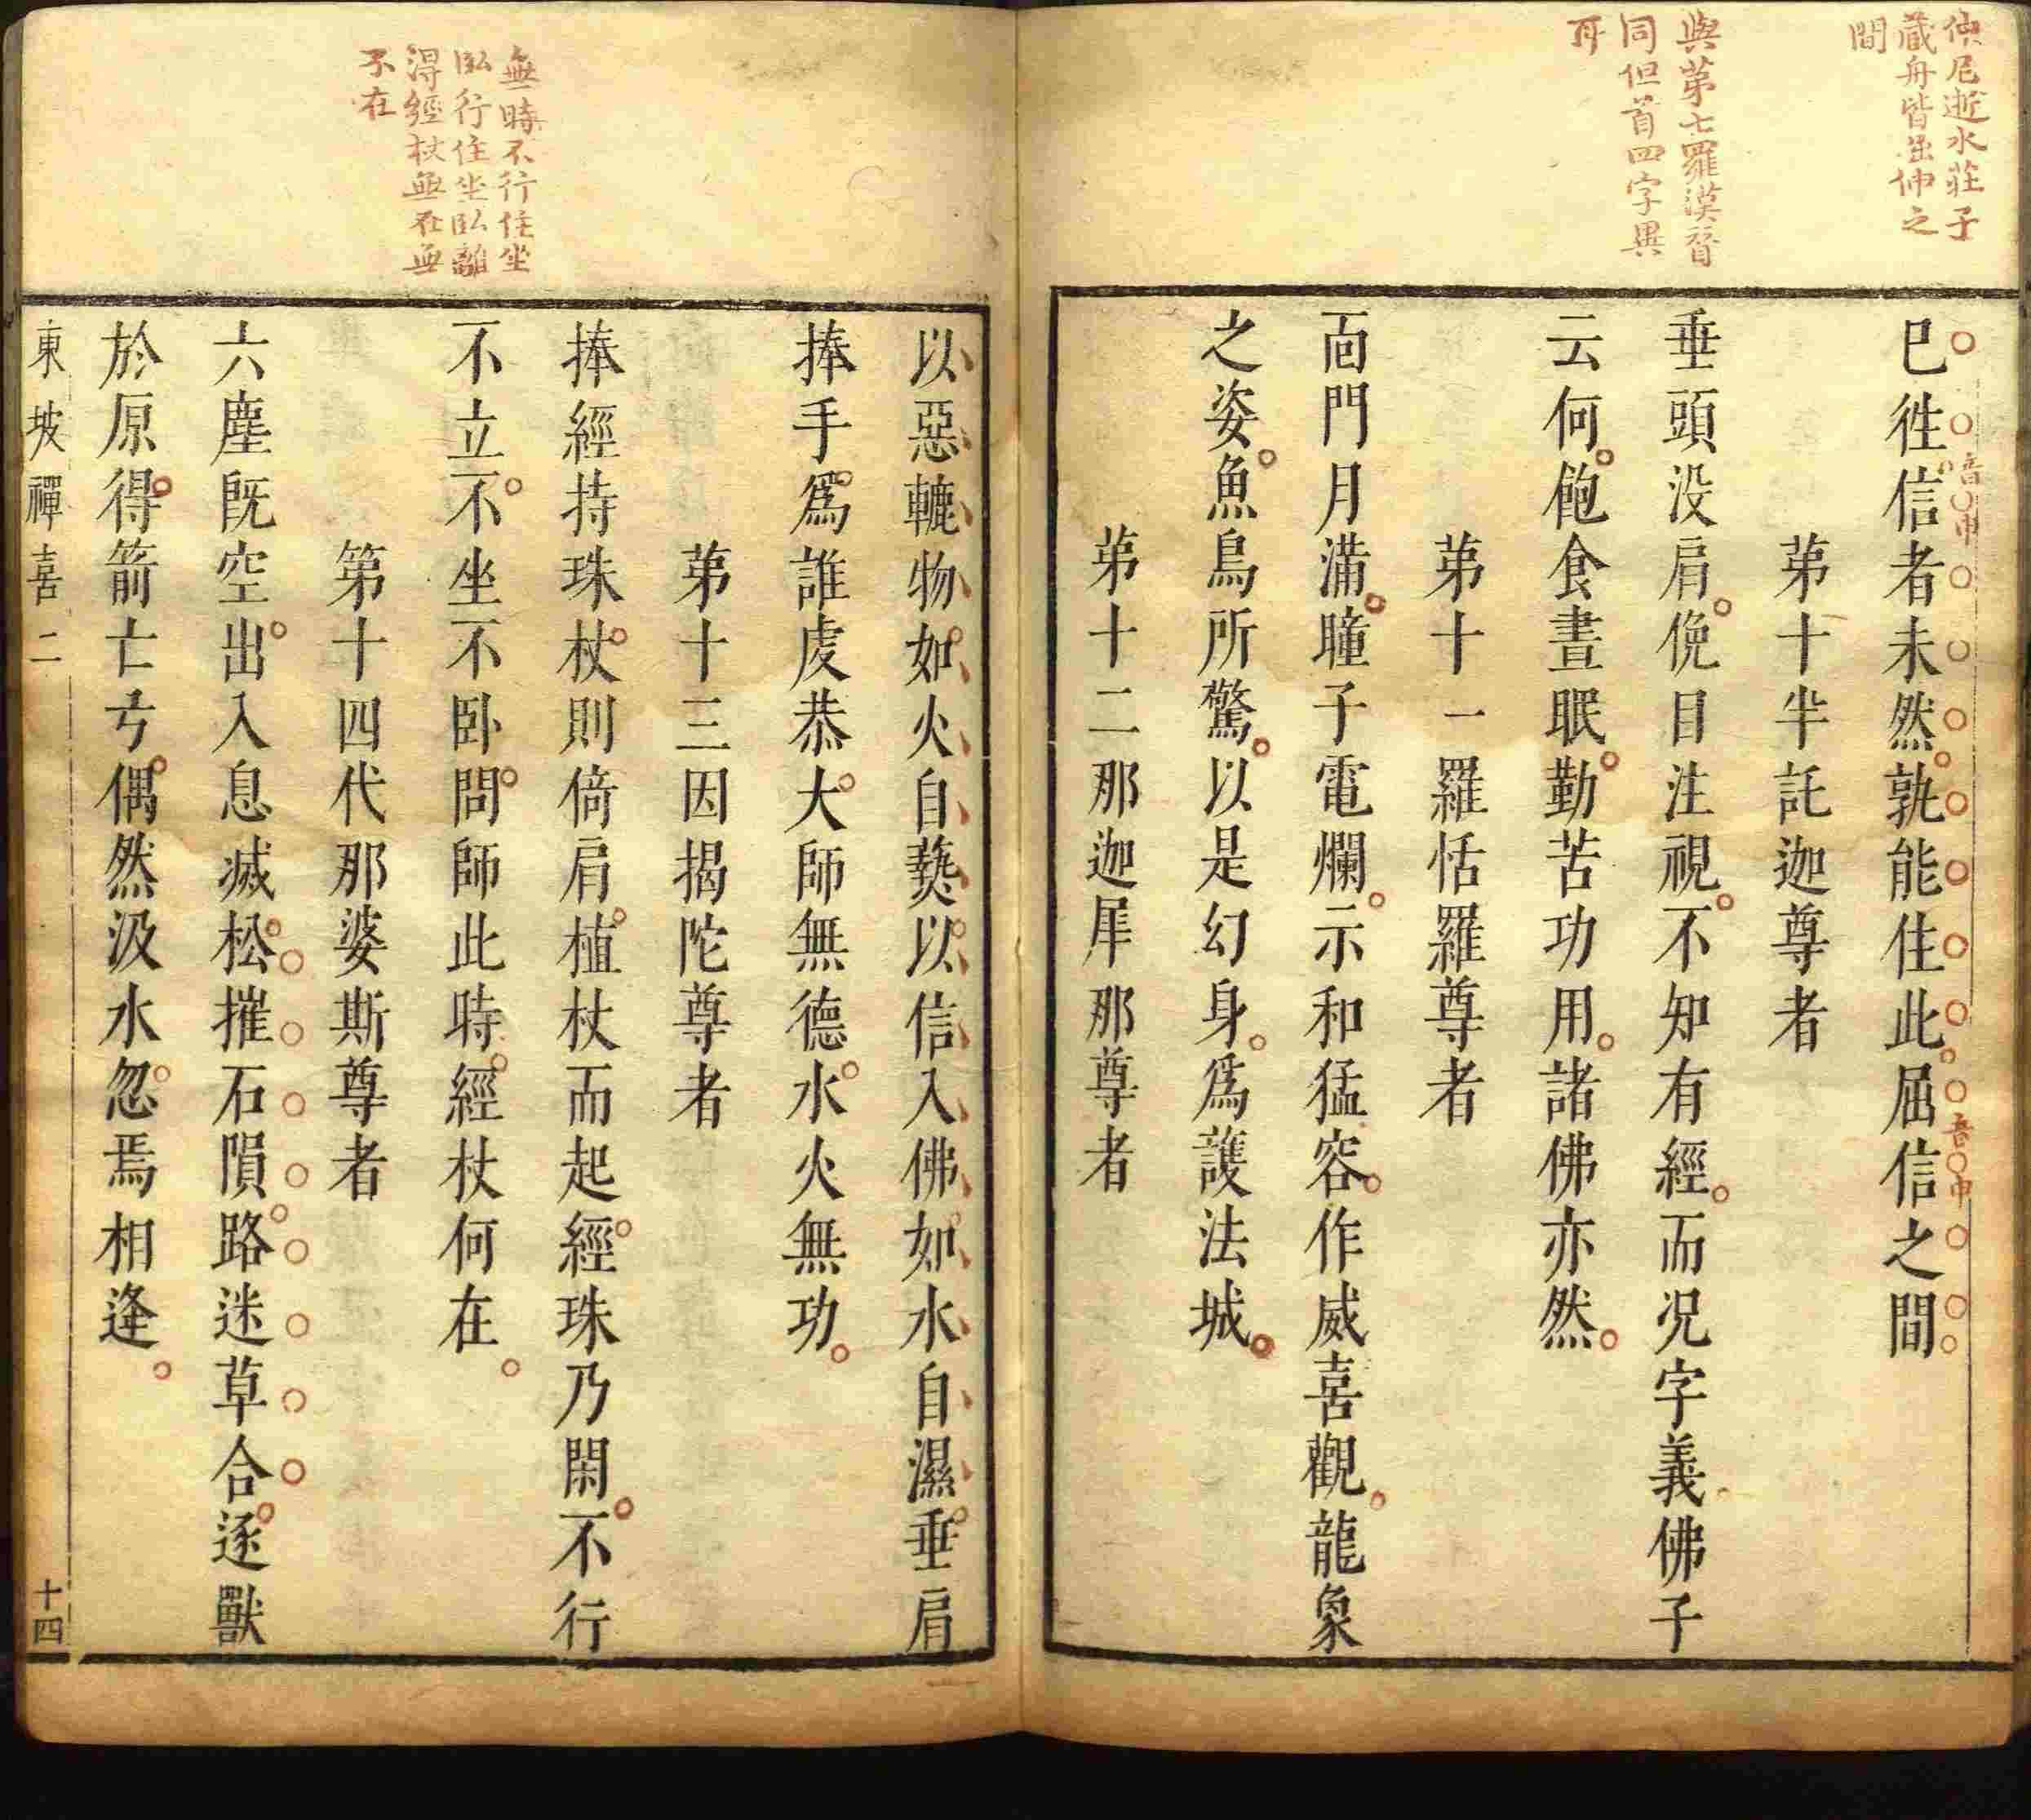 仲尼逝水莊子
藏舟皆屈伸之
間
與第七羅漢晉
同但首四字異
耳
已徃信者未然孰能住此屈信之間
音申
音申
第十半託迦尊者
垂頭没肩俛目注視不知有經而况字義佛子
云何飽食晝眠勤苦功用諸佛亦然
第十一羅怙羅尊者
面門月滿瞳子電爛示和猛容作威喜觀龍象
之姿魚鳥所驚以是幻身爲護法城
第十二那迦犀那尊者
無時不行住坐
臥行住坐臥離
得經杖無在無
不在
以惡轆物如火自爇以信入佛如水自濕垂肩
捧手爲誰虔恭大師無德水火無功
第十三因揭陀尊者
捧經持珠杖則倚肩植杖而起經珠乃閑不行
不立不坐不卧問師此時經杖何在
第十四代那婆斯尊者
六塵既空出入息滅松摧石隕路迷草合逐獸
於原得箭亡弓偶然汲水忽焉相逢
東坡禪喜二
十四